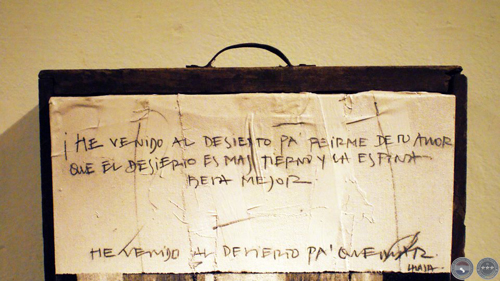 ¡HE VENIDO AL DESIERTO PA' REIRME DE TU AMOR
QUE EL DESIERTO ES MAS TIERNO Y LA ESPINA
BESA MEJOR
HE VENIDO AL DESIERTO PA' QUEMAR
LHASA